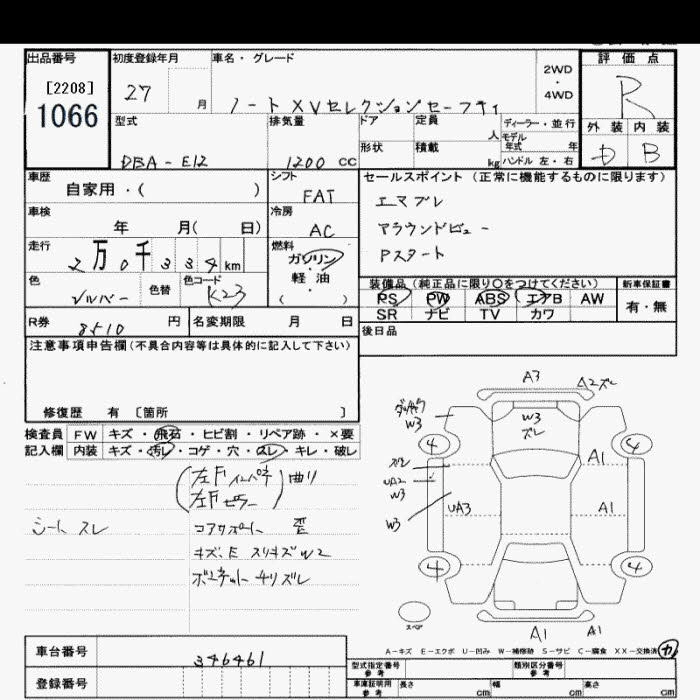 出品番号 初度登録年月 車名・グレード 評価点
[2208] 2WD
1066 27 月 ノート XVセレクションセーフティ ・ R
4WD
型式 排気量 ドア 定員 ディーラー・並行 外装 内装
人 モデル年式 年
DBA-E12 1200 cc 形状 積載 kg ハンドル 左・右 D B
車歴 シフト セールスポイント (正常に機能するものに限ります)
自家用・( ) FAT エマブレ
車検 冷房 アラウンドビュー
年 月( 日) AC Pスタート
走行 燃料
2万0千334km ガソリン
・
軽油
色 色替 色コード ( ) 装備品(純正品に限り○をつけてください) 新車保証書
シルバー K23 PS PW ABS エアB AW 有・無
SR ナビ TV カワ
R券 8510 円 名変期限 月 日 後日品
注意事項申告欄(不具合内容等は具体的に記入して下さい)
修復歴 有 〔箇所 〕
検査員 FW キズ・飛石・ヒビ割・リペア跡・×要
記入欄 内装 キズ・汚レ・コゲ・穴・スレ・キレ・破レ
左Fインパネ
左Fピラー 曲り
シート スレ コアサポート 歪
キズ、E スリキズ W2
ボンネット チリズレ
A3 A2ズレ
W3 W3
ズレ
4 4
ズレ A1
UA2
W3 UA3 A1
W3
4 4
スペア A1 A1
A-キズ E-エクボ U-凹み W-補修跡 S-サビ C-腐食 XX-交換済
車台番号 346461
型式指定番号 参考 類別区分番号 参考
登録番号 車庫証明用 参考 長さ cm 幅 cm 高さ cm